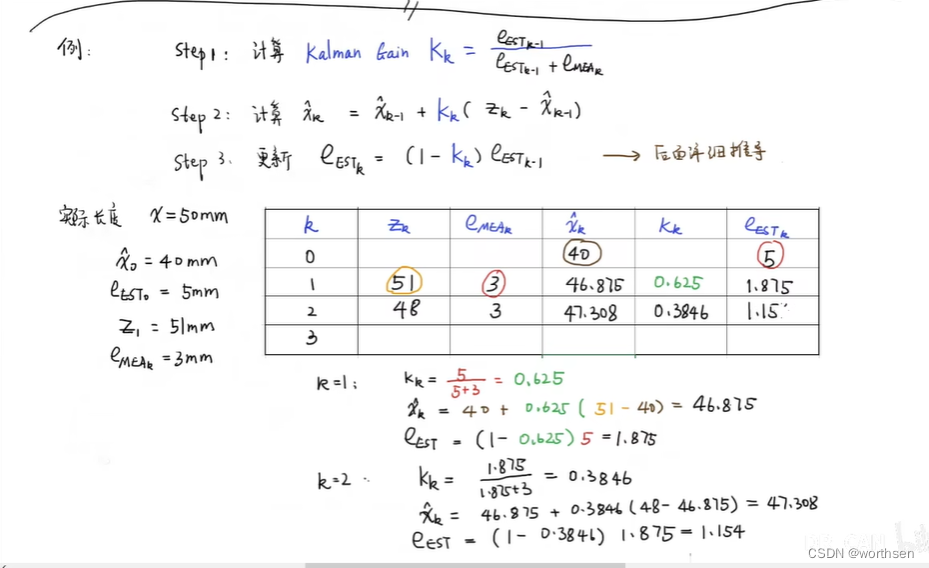 例: Step1: 计算 Kalman Gain Kₖ = e_ESTₖ₋₁ / (e_ESTₖ₋₁ + e_MEAₖ)
Step 2: 计算 x̂ₖ = x̂ₖ₋₁ + Kₖ( zₖ - x̂ₖ₋₁)
Step 3. 更新 e_ESTₖ = (1 - Kₖ) e_ESTₖ₋₁ → 后面详细推导
实际长度 x = 50mm
x̂₀ = 40mm
e_EST₀ = 5mm
z₁ = 51mm
e_MEAₖ = 3mm
k zₖ e_MEAₖ x̂ₖ Kₖ e_ESTₖ
0 40 5
1 51 3 46.875 0.625 1.875
2 48 3 47.308 0.3846 1.15
3
k=1: Kₖ = 5 / (5+3) = 0.625
x̂ₖ = 40 + 0.625 ( 51 - 40) = 46.875
e_EST = (1 - 0.625) 5 = 1.875
k=2 Kₖ = 1.875 / (1.875+3) = 0.3846
x̂ₖ = 46.875 + 0.3846 (48 - 46.875) = 47.308
e_EST = (1 - 0.3846) 1.875 = 1.154
CSDN @worthsen